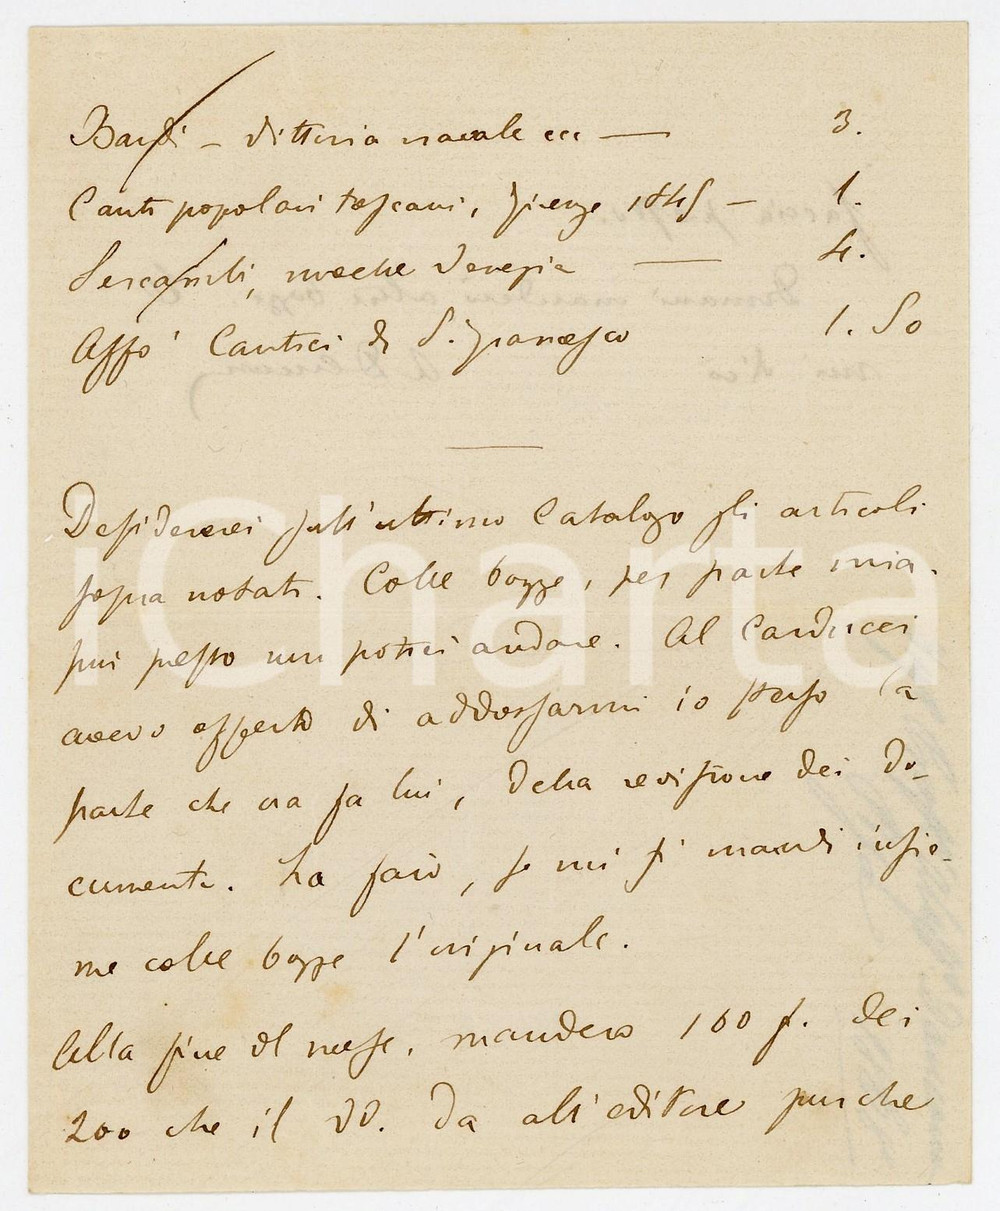 Bardi – Vittoria navale ecc — 3.
Canti popolari toscani, Firenze 1845 – 1.
Sercambi, novelle Venezia — 4.
Affò Cantici di S. Francesco 1.50
Desidererei sull'ultimo Catalogo gli articoli
sopra notati. Colle bozze, per parte mia
più presto non potrei andare. Al Carducci
avevo offerto di addossarmi io stesso la
parte che ora fa lui, della revisione dei do-
cumenti. La farò, se mi si mandi insie-
me colle bozze l'originale.
Alla fine del mese, manderò 160 f. dei
200 che il dà all'editore purché
iCharta